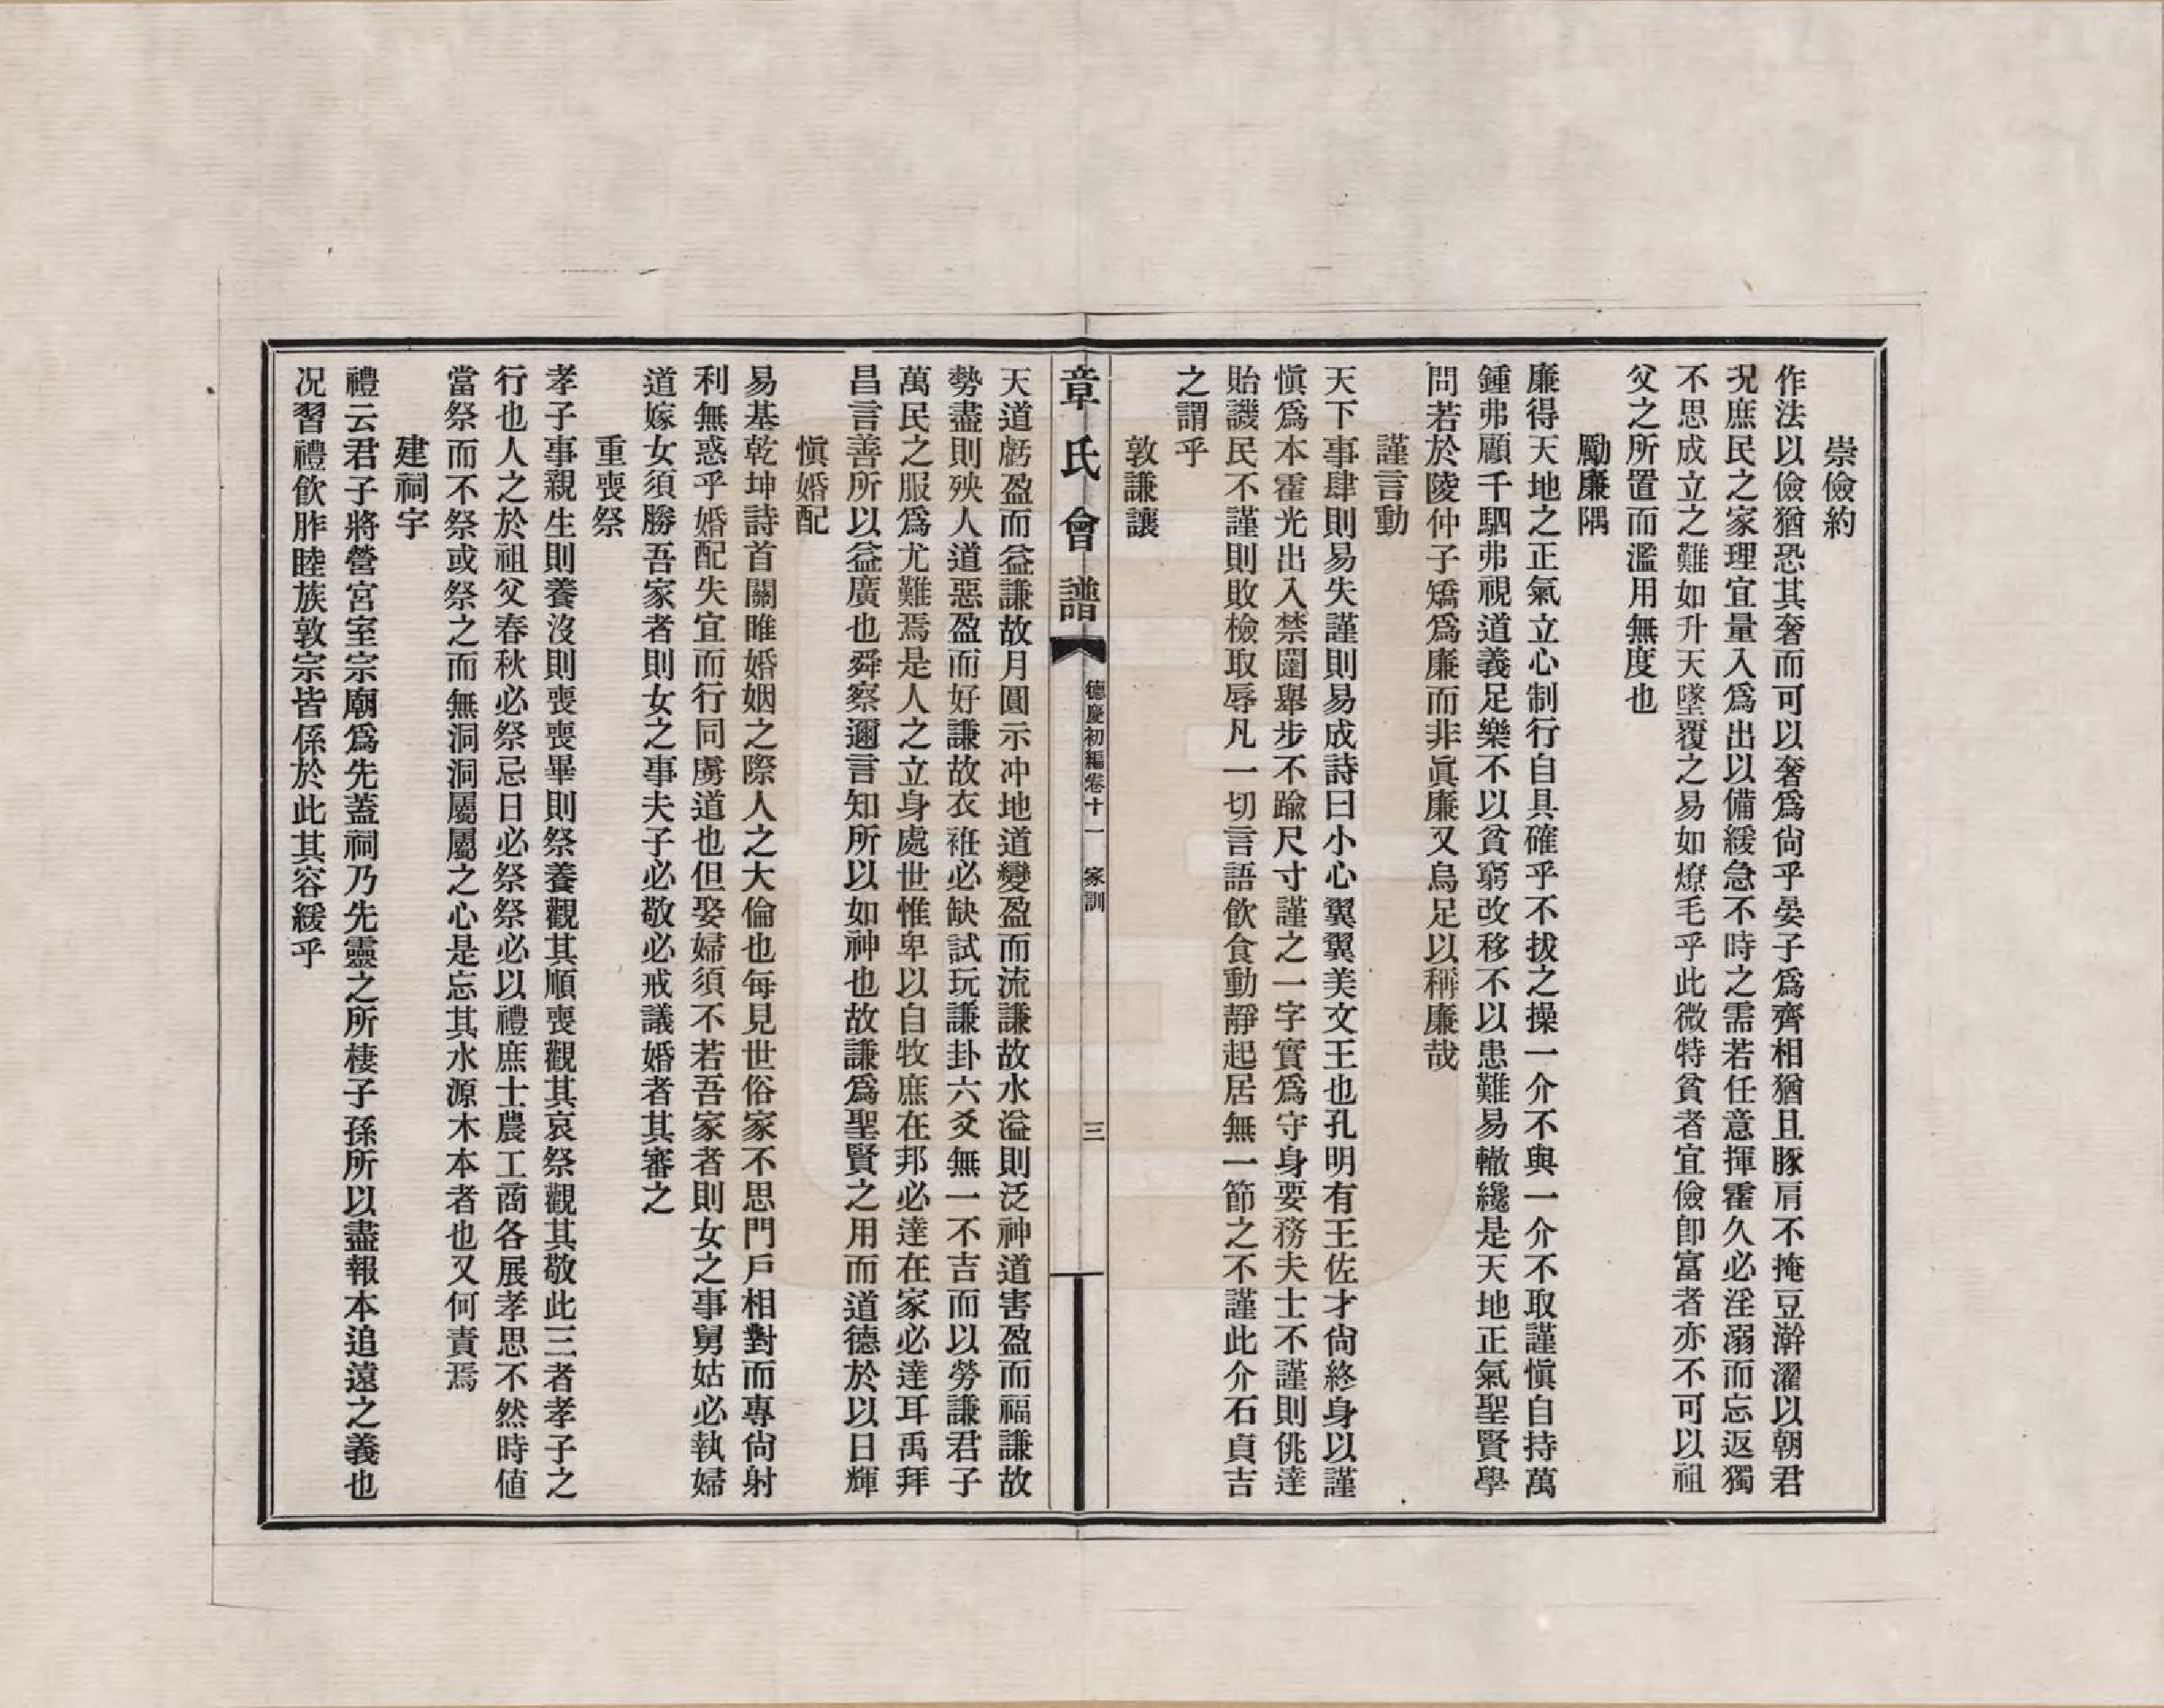 崇儉約
作法以儉猶恐其奢而可以奢爲尙乎晏子爲齊相猶且豚肩不掩豆澣濯以朝君
況庶民之家理宜量入爲出以備緩急不時之需若任意揮霍久必淫溺而忘返獨
不思成立之難如升天墜覆之易如燎毛乎此微特貧者宜儉卽富者亦不可以祖
父之所置而濫用無度也
勵廉隅
廉得天地之正氣立心制行自具確乎不拔之操一介不與一介不取謹愼自持萬
鍾弗顧千駟弗視道義足樂不以貧窮改移不以患難易轍纔是天地正氣聖賢學
問若於陵仲子矯爲廉而非眞廉又烏足以稱廉哉
謹言動
天下事肆則易失謹則易成詩曰小心翼翼美文王也孔明有王佐才尙終身以謹
愼爲本霍光出入禁闥舉步不踰尺寸謹之一字實爲守身要務夫士不謹則佻達
貽譏民不謹則敗檢取辱凡一切言語飮食動靜起居無一節之不謹此介石貞吉
之謂乎
敦謙讓
章氏會譜
德慶初編卷十一 家訓
三
天道虧盈而益謙故月圓示冲地道變盈而流謙故水溢則泛神道害盈而福謙故
勢盡則殃人道惡盈而好謙故衣袵必缺試玩謙卦六爻無一不吉而以勞謙君子
萬民之服爲尤難焉是人之立身處世惟卑以自牧庶在邦必達在家必達耳禹拜
昌言善所以益廣也舜察邇言知所以如神也故謙爲聖賢之用而道德於以日輝
愼婚配
易基乾坤詩首關睢婚姻之際人之大倫也每見世俗家不思門戶相對而專尙射
利無惑乎婚配失宜而行同虜道也但娶婦須不若吾家者則女之事舅姑必執婦
道嫁女須勝吾家者則女之事夫子必敬必戒議婚者其審之
重喪祭
孝子事親生則養沒則喪喪畢則祭養觀其順喪觀其哀祭觀其敬此三者孝子之
行也人之於祖父春秋必祭忌日必祭祭必以禮庶士農工商各展孝思不然時値
當祭而不祭或祭之而無洞洞屬屬之心是忘其水源木本者也又何責焉
建祠宇
禮云君子將營宮室宗廟爲先蓋祠乃先靈之所棲子孫所以盡報本追遠之義也
况習禮飮胙睦族敦宗皆係於此其容緩乎